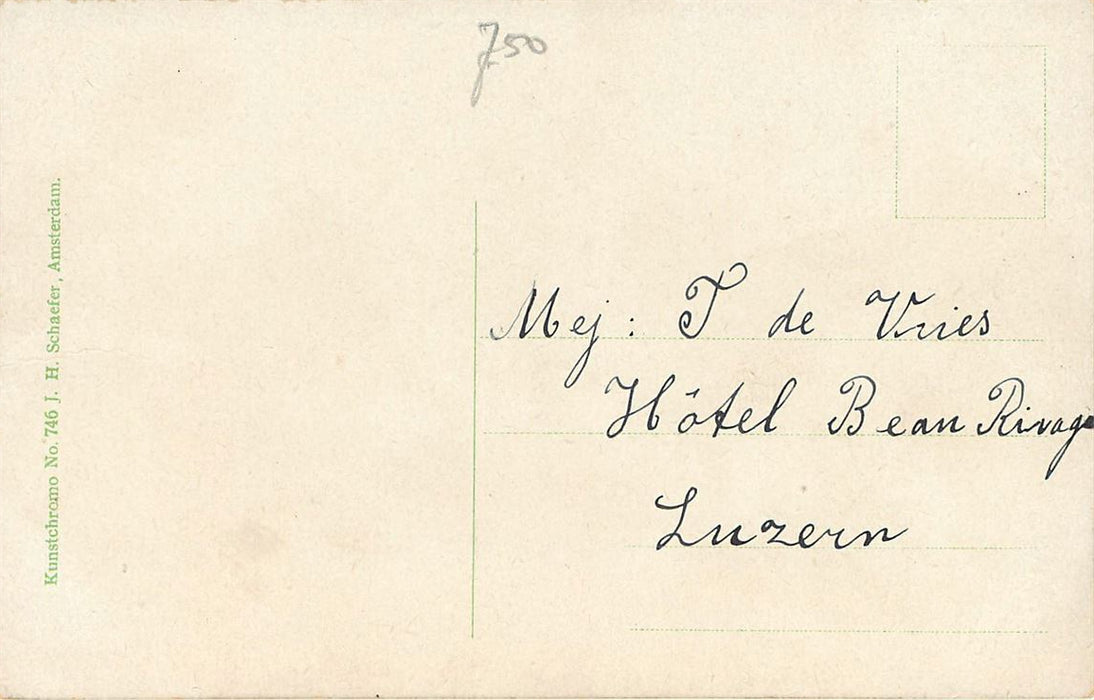 750
Kunstchromo No. 746 J. H. Schaefer, Amsterdam.
Mej: T de Vries
Hôtel Beau Rivage
Luzern